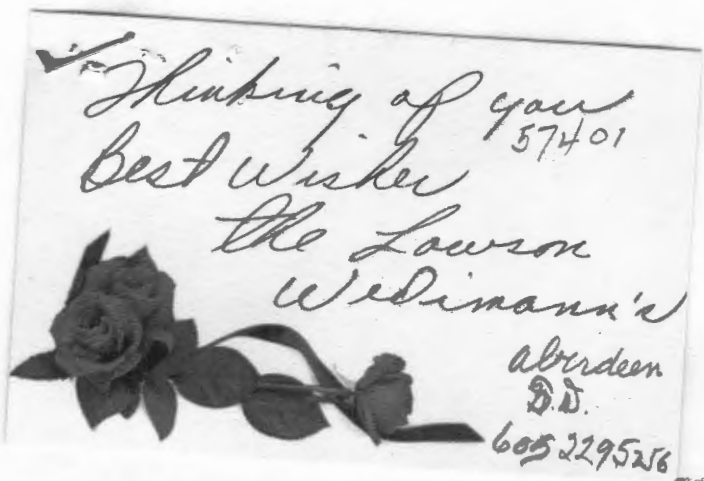 Thinking of you
57401
Best Wishes
the Lawson
Wedimann's
Aberdeen
S.D.
605 2295256